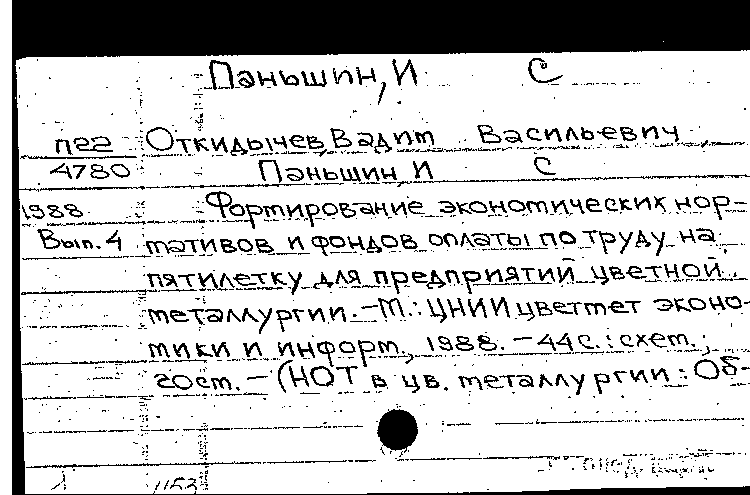 Паньшин, И С
П22 Откидычев, Вадим Васильевич,
4780 Паньшин, И С
1988 Формирование экономических нор-
Вып. 4 мативов и фондов оплаты по труду на
пятилетку для предприятий цветной
металлургии. - М.: ЦНИИцветмет эконо-
мики и информ., 1988. - 44 с.: схем.;
20 см. - (НОТ в цв. металлургии: Об-
1153